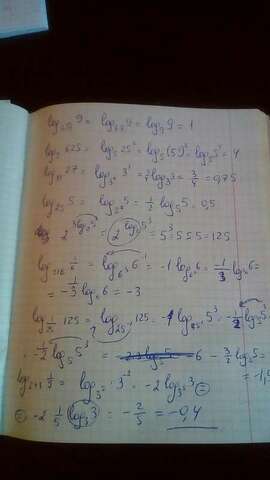 log₂₅₁ 9 = log₉ 9 = log₉ 9 = 1
log₅ 625 = log₅ 25² = log₅ (5²)² = log₅ 5⁴ = 4
log₈₁ 27 = log₃⁴ 3³ = ¾ log₃ 3 = 3/4 = 0,75
log₂₅ 5 = log₅² 5 = ½ log₅ 5 = 0,5
2^(3 log₂ 5) = 2^(log₂ 5³) = 5³ = 5·5·5 = 125
log₂₁₆ 1/6 = log₆³ 6⁻¹ = -1 log₆³ 6 = -1/3 log₆ 6 =
= -1/3 log₆ 6 = -3
log_(1/25) 125 = log₂₅⁻¹ 125 = -1 log₂₅ 5³ = -1/2 log₅ 5³
= -1/2 log₅ 5³ = -3/2 log₅ 5 = -1,5
log₂₄₃ 1/9 = log₃⁵ 3⁻² = -2 log₃⁵ 3 =
= -2 · 1/5 log₃ 3 = -2/5 = -0,4